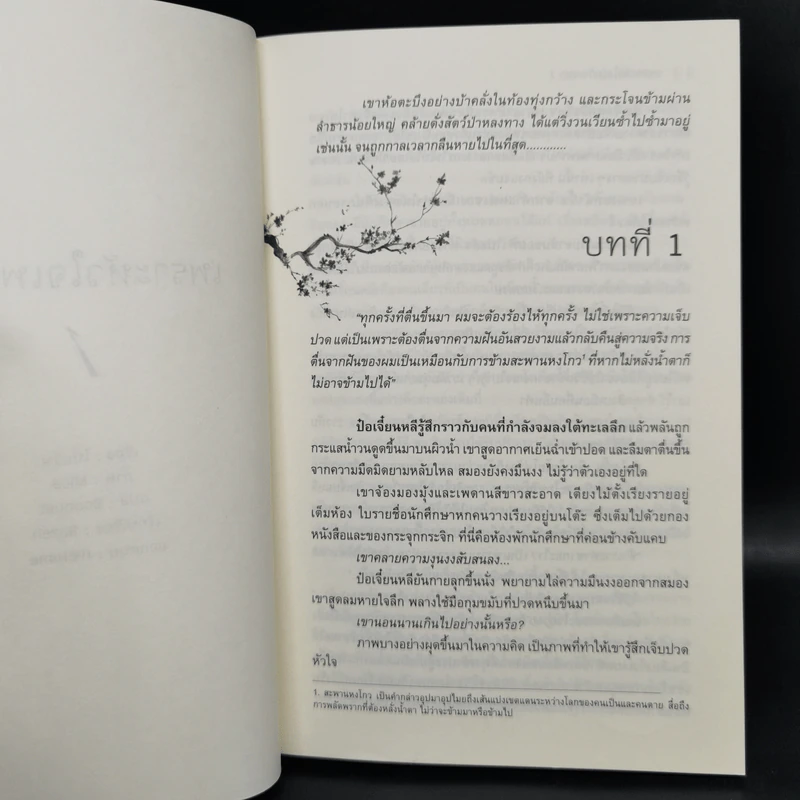 เขาห้อตะบึงอย่างบ้าคลั่งในท้องทุ่งกว้าง และกระโจนข้ามผ่าน
ลำธารน้อยใหญ่ คล้ายดั่งสัตว์ป่าหลงทาง ได้แต่วิ่งวนเวียนซ้ำไปซ้ำมาอยู่
เช่นนั้น จนถูกกาลเวลากลืนหายไปในที่สุด............
บทที่ 1
"ทุกครั้งที่ตื่นขึ้นมา ผมจะต้องร้องไห้ทุกครั้ง ไม่ใช่เพราะความเจ็บ
ปวด แต่เป็นเพราะต้องตื่นจากความฝันอันสวยงามแล้วกลับคืนสู่ความจริง การ
ตื่นจากฝันของผมเป็นเหมือนกับการข้ามสะพานหงโกว¹ ที่หากไม่หลั่งน้ำตาก็
ไม่อาจข้ามไปได้"
ป๋อเจี๋ยนหลีรู้สึกราวกับคนที่กำลังจมลงใต้ทะเลลึก แล้วพลันถูก
กระแสน้ำวนดูดขึ้นมาบนผิวน้ำ เขาสูดอากาศเย็นฉ่ำเข้าปอด และลืมตาตื่นขึ้น
จากความมืดมิดยามหลับใหล สมองยังคงมึนงง ไม่รู้ว่าตัวเองอยู่ที่ใด
เขาจ้องมองมุ้งและเพดานสีขาวสะอาด เตียงไม้ตั้งเรียงรายอยู่
เต็มห้อง ใบรายชื่อนักศึกษาหกคนวางเรียงอยู่บนโต๊ะ ซึ่งเต็มไปด้วยกอง
หนังสือและของกระจุกกระจิก ที่นี่คือห้องพักนักศึกษาที่ค่อนข้างคับแคบ
เขาคลายความงุนงงสับสนลง...
ป๋อเจี๋ยนหลียันกายลุกขึ้นนั่ง พยายามไล่ความมึนงงออกจากสมอง
เขาสูดลมหายใจลึก พลางใช้มือกุมขมับที่ปวดหนึบขึ้นมา
เขานอนนานเกินไปอย่างนั้นหรือ?
ภาพบางอย่างผุดขึ้นมาในความคิด เป็นภาพที่ทำให้เขารู้สึกเจ็บปวด
หัวใจ
1. สะพานหงโกว เป็นคำกล่าวอุปมาอุปไมยถึงเส้นแบ่งเขตแดนระหว่างโลกของคนเป็นและคนตาย สื่อถึง
การพลัดพรากที่ต้องหลั่งน้ำตา ไม่ว่าจะข้ามมาหรือข้ามไป